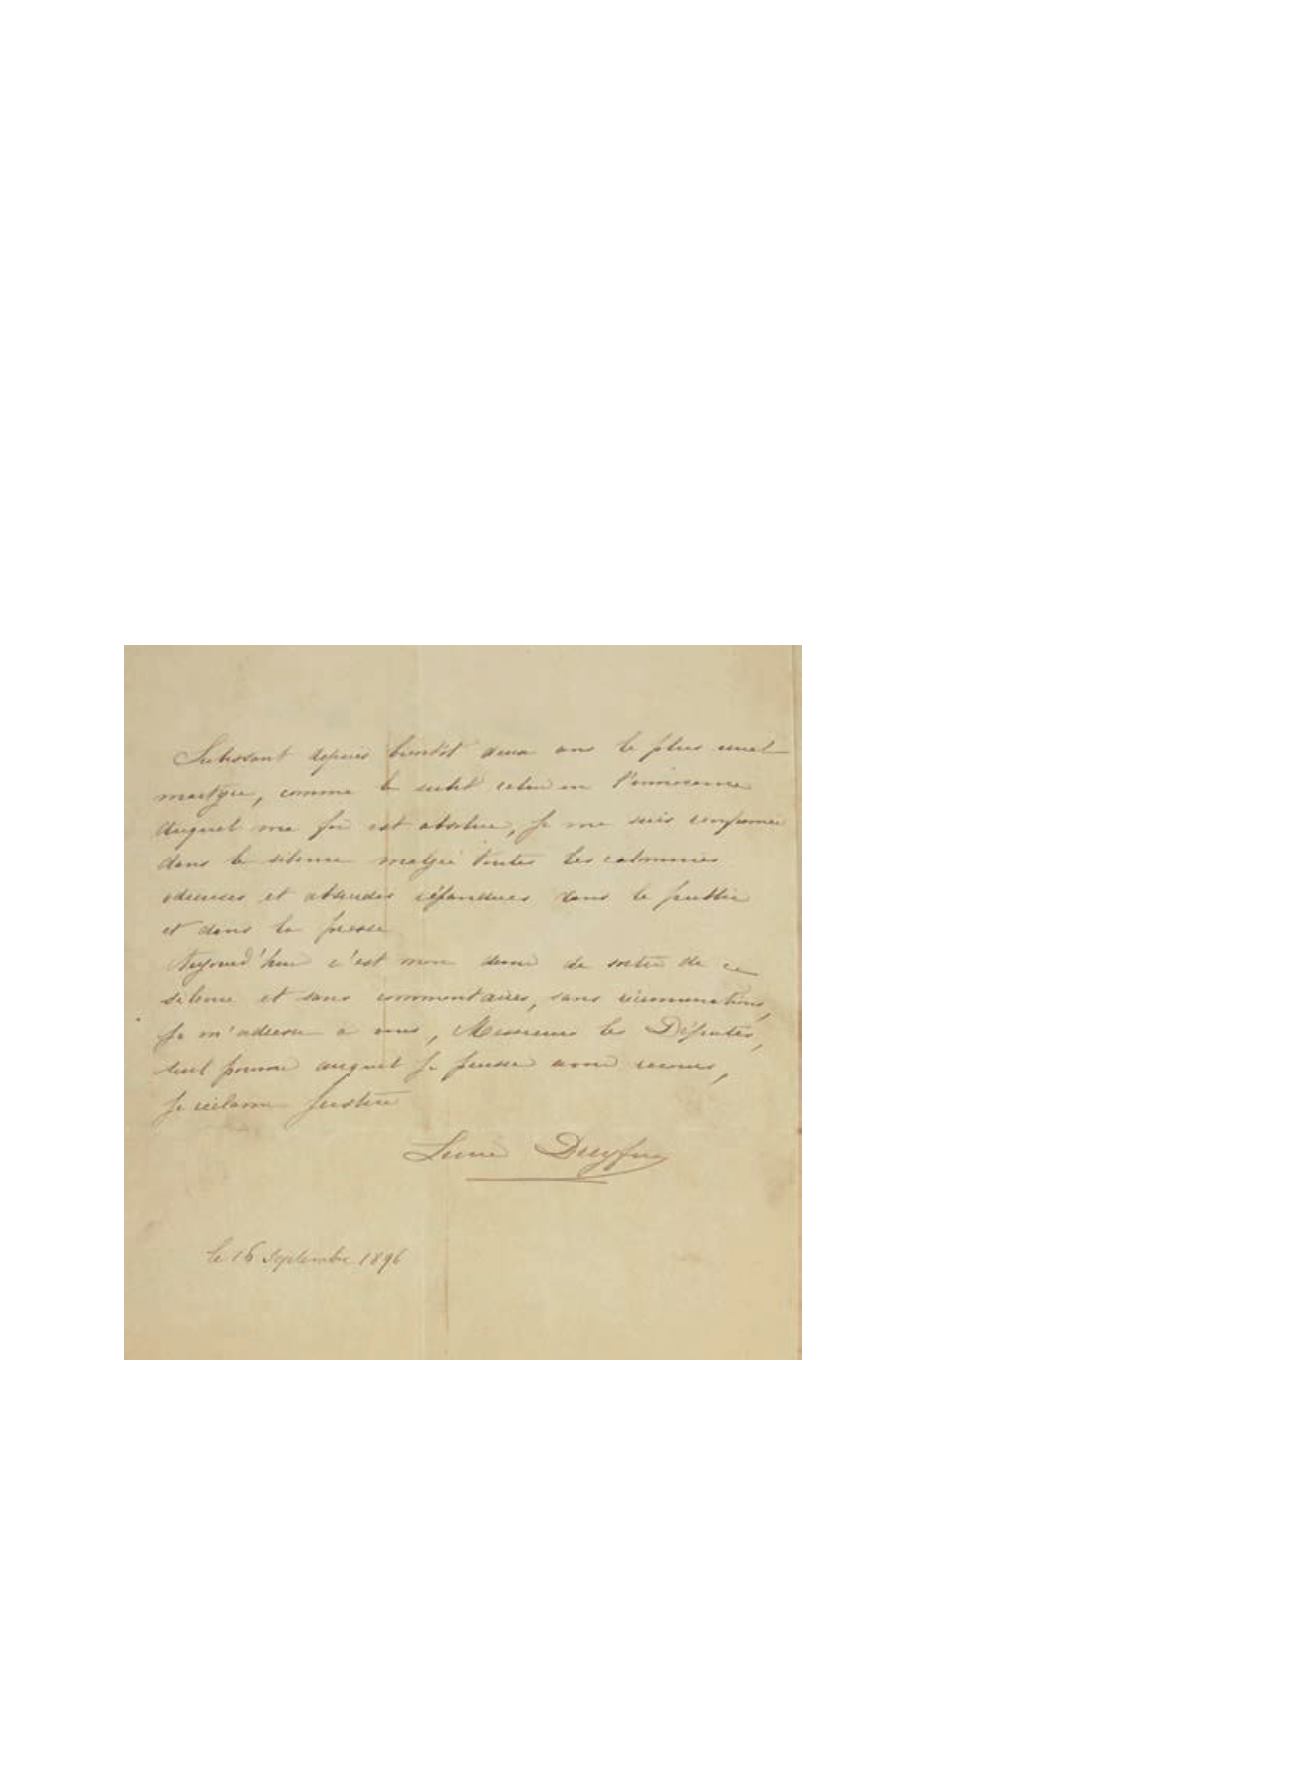 Subissant depuis bientôt deux ans le plus cruel
martyre, comme le subit celui en l'innocence
duquel ma foi est absolue, je me suis renfermée
dans le silence malgré toutes les calomnies
odieuses et absurdes répandues dans le public
et dans la presse
Aujourd'hui c'est mon devoir de sortir de ce
silence et sans commentaires, sans récriminations,
je m'adresse à vous, Messieurs les Députés,
seul pouvoir auquel je puisse avoir recours,
je réclame justice
Lucie Dreyfus
le 16 Septembre 1896